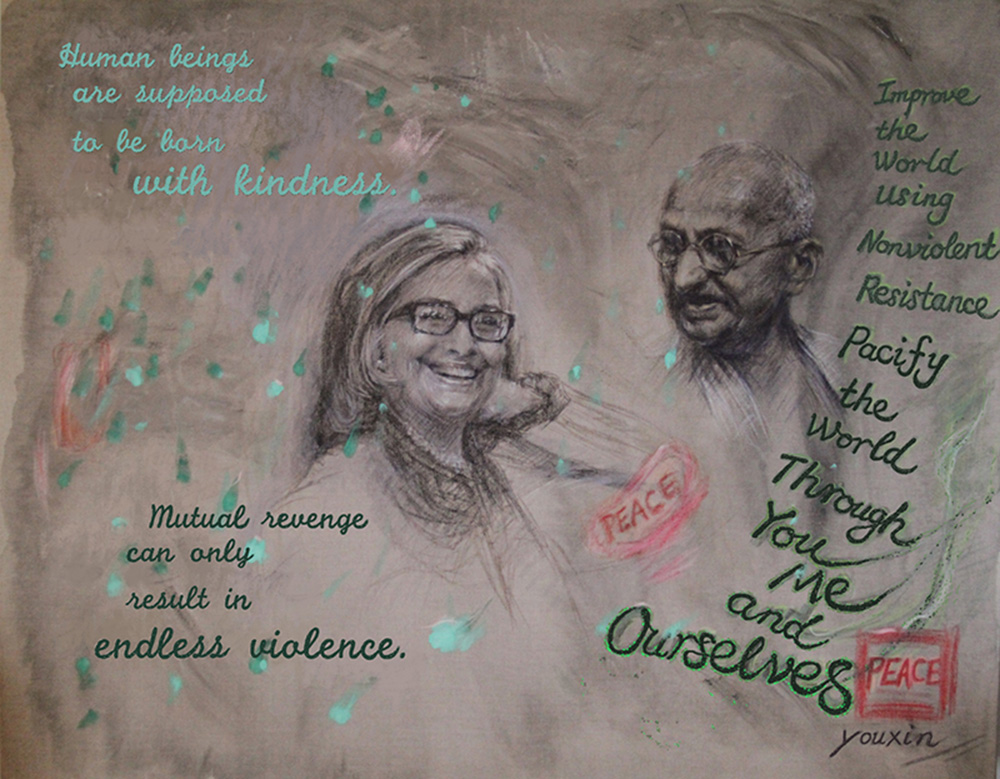 Human beings
are supposed
to be born
with kindness.
Mutual revenge
can only
result in
endless violence.
PEACE
Improve
the
World
Using
Nonviolent
Resistance
Pacify
the
World
Through
You
Me
and
Ourselves
PEACE
youxin